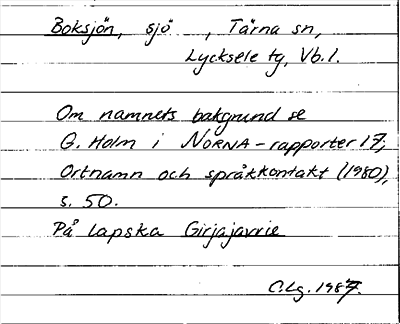 Boksjön, sjö , Tärna sn,
Lycksele tg, Vb. l.
Om namnets bakgrund se
G. Holm i NORNA-rapporter 17;
Ortnamn och språkkontakt (1980),
s. 50.
På lapska Girjajavrie
C.Lg. 1987.